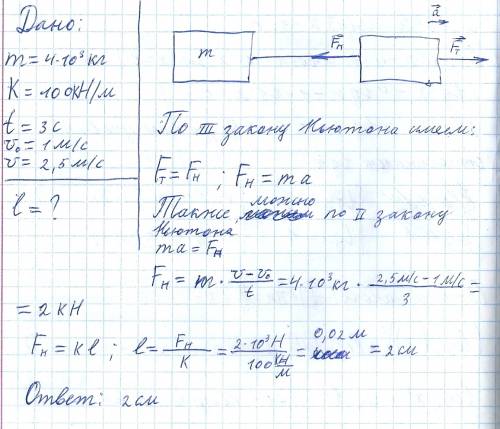 Дано:
m = 4·10³ кг
K = 100 кН/м
t = 3 с
v₀ = 1 м/с
v = 2,5 м/с
l = ?
m
F⃗н
a⃗
F⃗т
По III закону Ньютона имеем:
F⃗т = F⃗н ; Fн = ma
Также, можно по II закону
Ньютона
ma = Fн
Fн = m · (v − v₀)/t = 4·10³ кг · (2,5 м/с − 1 м/с)/3 =
= 2 кН
Fн = kl ; l = Fн/K = 2·10³ Н/100 кН/м = 0,02 м = 2 см
Ответ: 2 см